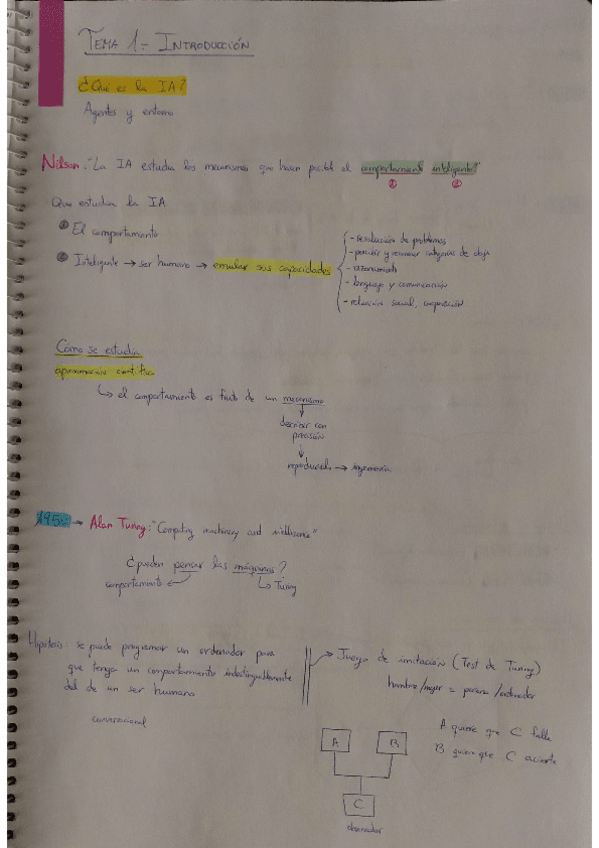 TEMA 1- INTRODUCCIÓN
¿Qué es la IA?
Agentes y entorno
Nilson: "La IA estudia los mecanismos que hacen posible el comportamiento inteligente"
① ②
Que estudia la IA
① El comportamiento
② Inteligente → ser humano → emular sus capacidades
- resolución de problemas
- percibir y reconocer categorías de objs
- razonamiento
- lenguaje y comunicación
- relación social, cooperación
Como se estudia
aproximación científica
↳ el comportamiento es fruto de un mecanismo
describir con
precisión
reproducirlo → ingeniería
1950 → Alan Turing: "Computing machinery and intelligence"
¿pueden pensar las máquinas?
comportamiento ↳ Turing
Hipótesis: se puede programar un ordenador para
que tenga un comportamiento indistinguiblemente
del de un ser humano
conversacional
→ Juego de imitación (Test de Turing)
hombre/mujer = persona/ordenador
A quiere que C falle
B quiere que C acierte
A B
C
observador